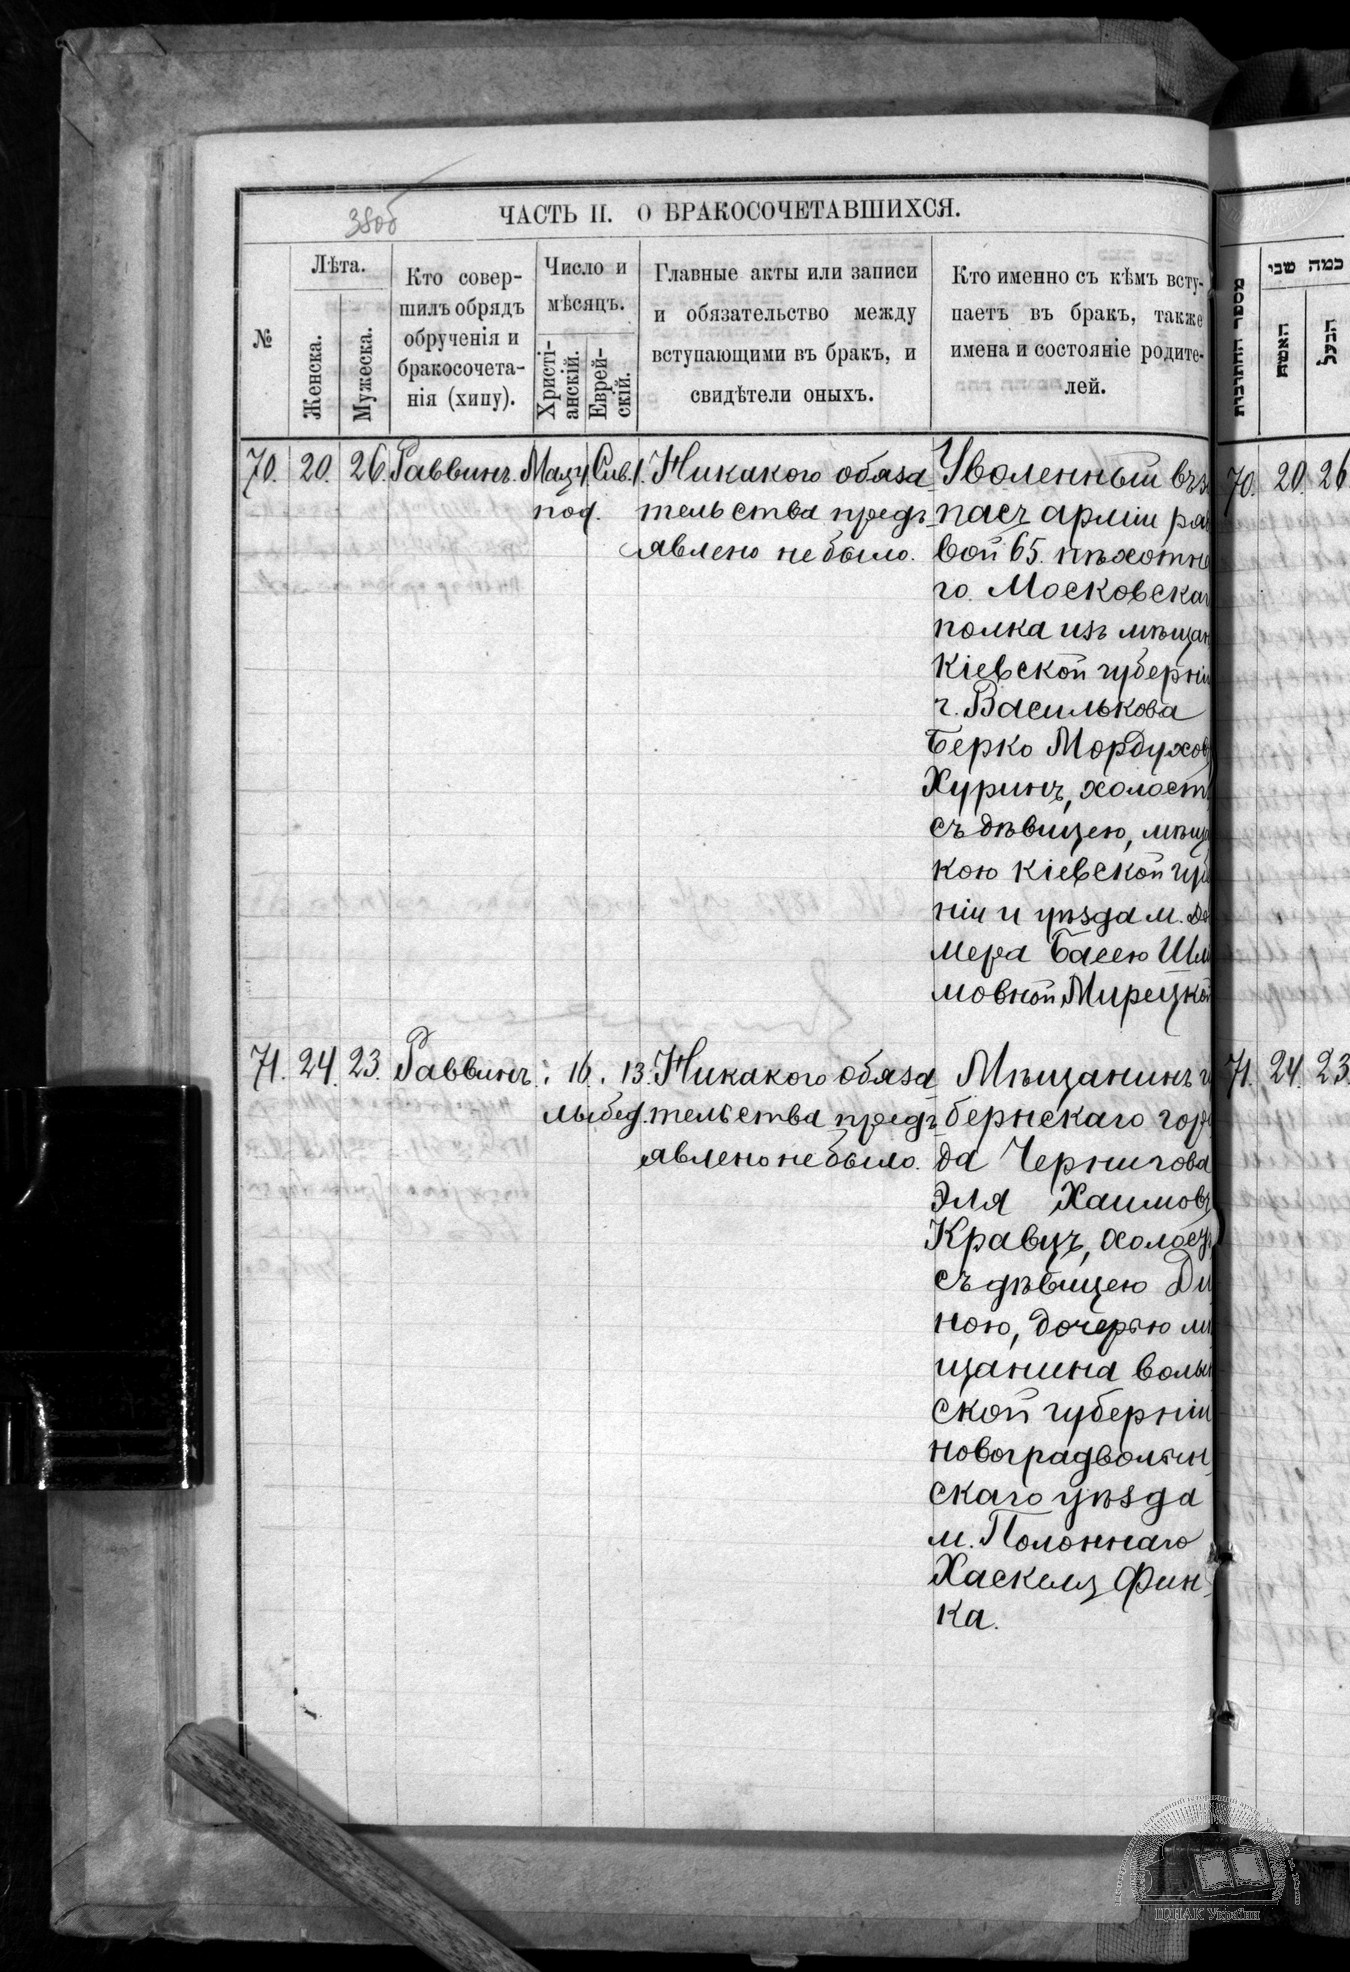 38об
ЧАСТЬ II. О БРАКОСОЧЕТАВШИХСЯ.
№
Лѣта.
Женска.
Мужеска.
Кто совер-
шилъ обрядъ
обрученія и
бракосочета-
нія (хипу).
Число и
мѣсяцъ.
Христі-
анскій.
Еврей-
скій.
Главные акты или записи
и обязательство между
вступающими въ бракъ, и
свидѣтели оныхъ.
Кто именно съ кѣмъ всту-
паетъ въ бракъ, также
имена и состояніе родите-
лей.
70. 20. 26. Раввинъ.
под.
Никакого обяза
тельства предъ-
явлено не было.
Уволенный въ
пасъ арміи
вой 65. пѣхотн
го Московска
полка изъ мѣщан
Кіевской губерніи
г. Василькова
Берко Мордухов
Хуринъ, холост
съ дѣвицею, мѣщ
кою Кіевской губ
ніи и уѣзда м. Ды
мера Басею Шл
мовной Мирецкой
71. 24. 23. Раввинъ. 16. 13.
Никакого обяза
тельства предъ-
явлено не было.
Мѣщанинъ г
бернскаго гор
да Чернигова
Эля Хаимов
Кравцъ, холост
съ дѣвицею Ди
ною, дочерью м
щанина волын
ской губерніи
новоградволын-
скаго уѣзда
м. Полоннаго
Хаскеля Фин-
ка.
מספר החתונות
כמה שני
האשה
הבעל
70. 20. 26
71. 24. 23.
ЦДІАК України